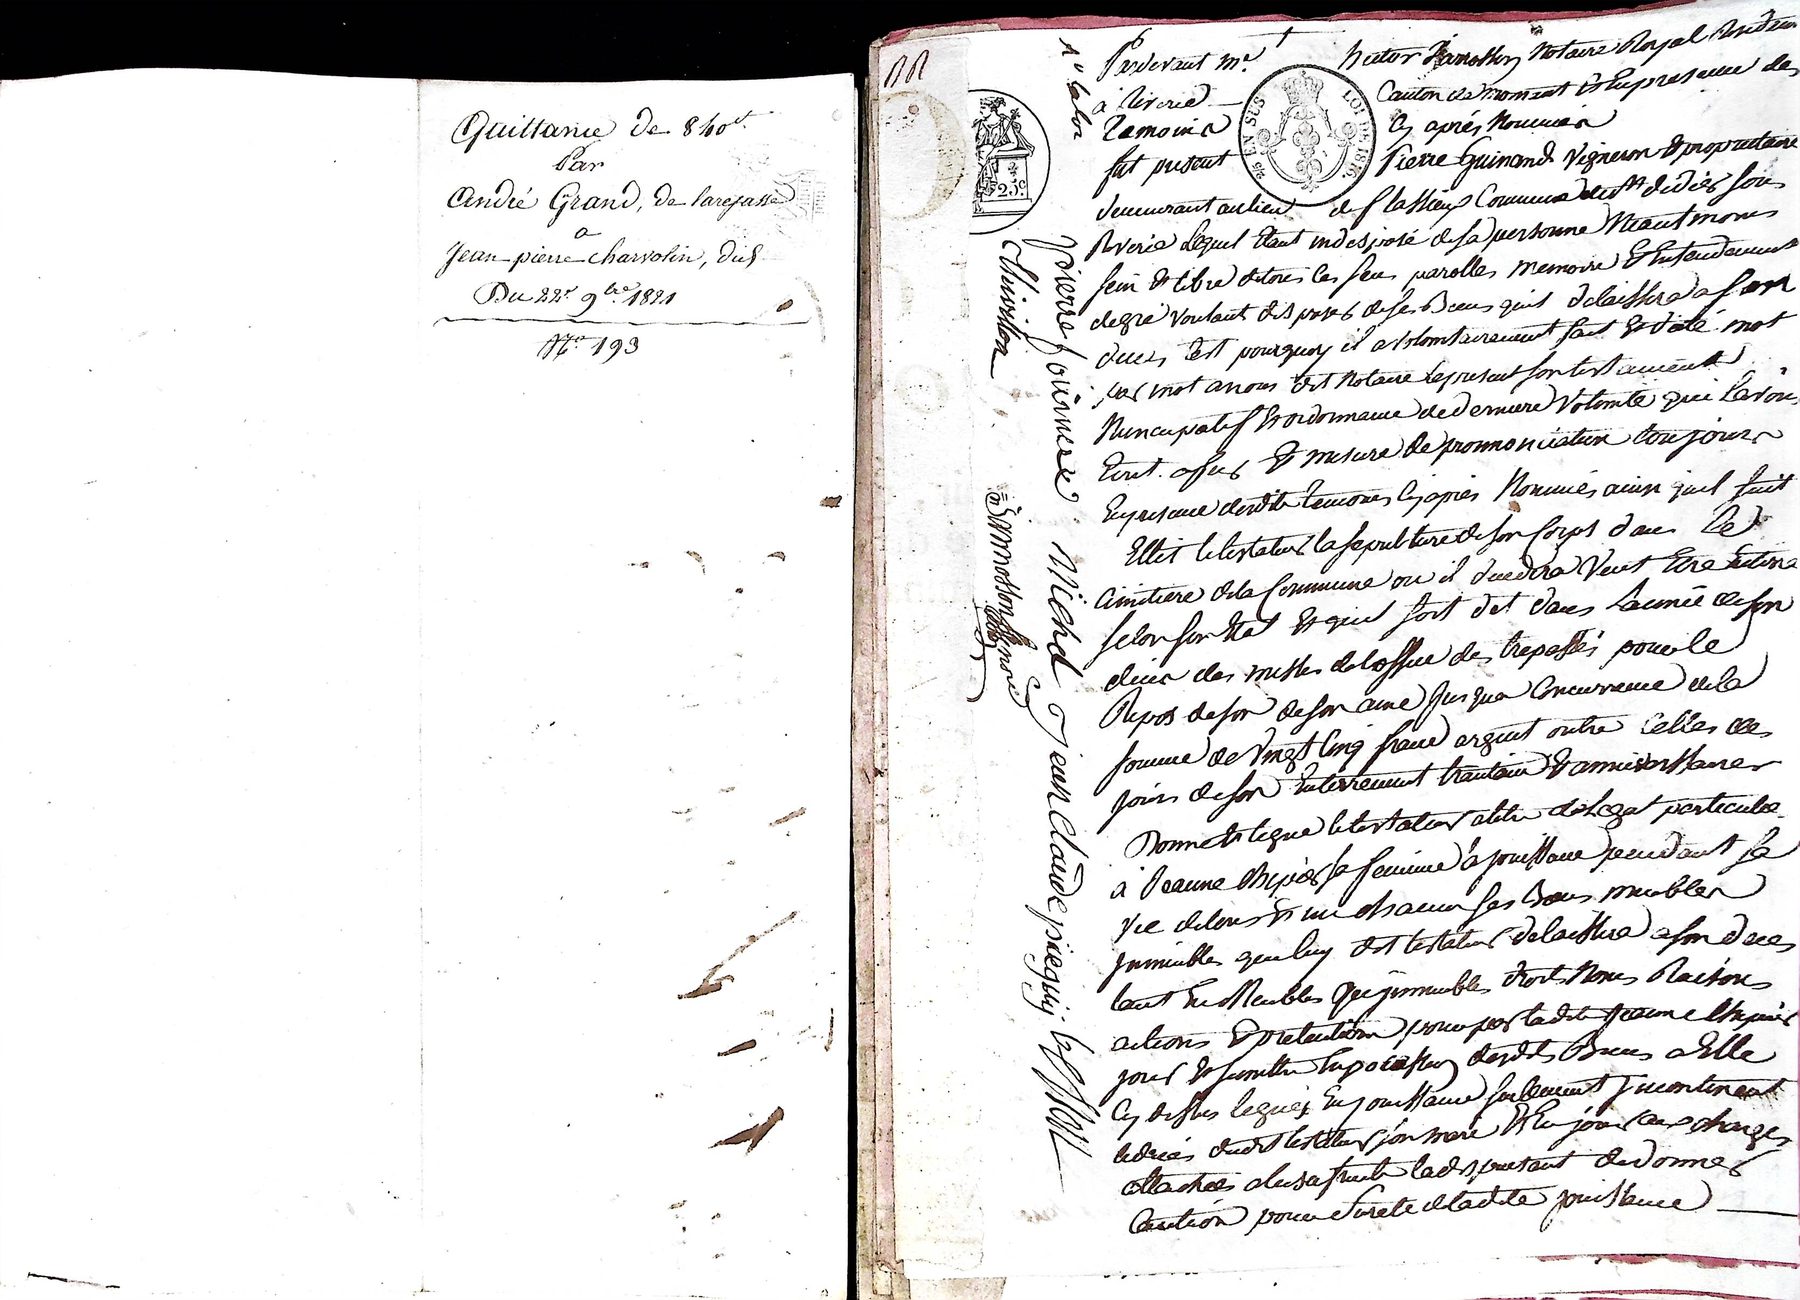 Quittance de 840 ᶠᵗ
Par
André Grand, de larajasse
a
Jean-pierre charvolin, dud.
Du 22 9bre 1821
N° 193
Pardevant me hector notaire Royal
à riverie canton de mornant Et En presence des
Temoins Cy aprés Nommés
fut present Pierre Guinand Vigneron & proprietaire
demeurant au lieu de flassieu Commune de st didier sous
Riverie Lequel Etant indisposé de sa personne Neantmoins
sein & libre de tous ses sens parolles memoire & Entendement
degré voulant disposer de ses Biens quil delaissera a son
deces Cest pourquoy il a volontairement fait & dicté mot
par mot a nous dit Notaire le present son testament
Nuncupatif & ordonnance de derniere volonté que Lavons
Ecrit affur & mesure de pronnonciation toujours
En presence desdits temoins Cy après Nommés ainsi quil suit
Ellit le testateur la sepulture de son Corps dans Le
Cimitiere de la Commune ou il decedera Veut Etre
selon son Etat & quil soit dit dans Lannée de son
deces des messes de loffice des trepassés pour le
Repos de son de son ame Jusqua Concurrence de la
somme de Vingt Cinq franc argent outre Celles des
jours de son Enterrement trantain & anniverssaire
Donne & legue le testateur a titre de Legat particulier
à Jeanne sa femme la jouissance pendant sa
vie de tous & un chacun ses Biens meubles
Immeubles que luy dit testateur delaissera a son deces
tant En Meubles Que jmmeubles droits Noms Raisons
actions & pretentions pour par ladite Jeanne
jouir & se mettre En possession desdits Biens a Elle
Cy dessus legués En jouissance seulement Incontinent
le deces dudit testateur son mari & En jouir aux charges
attachées a lusufruit la dispensant de donner
Caution pour sureté de ladite jouissance
pierre fournere Michel jean Claude